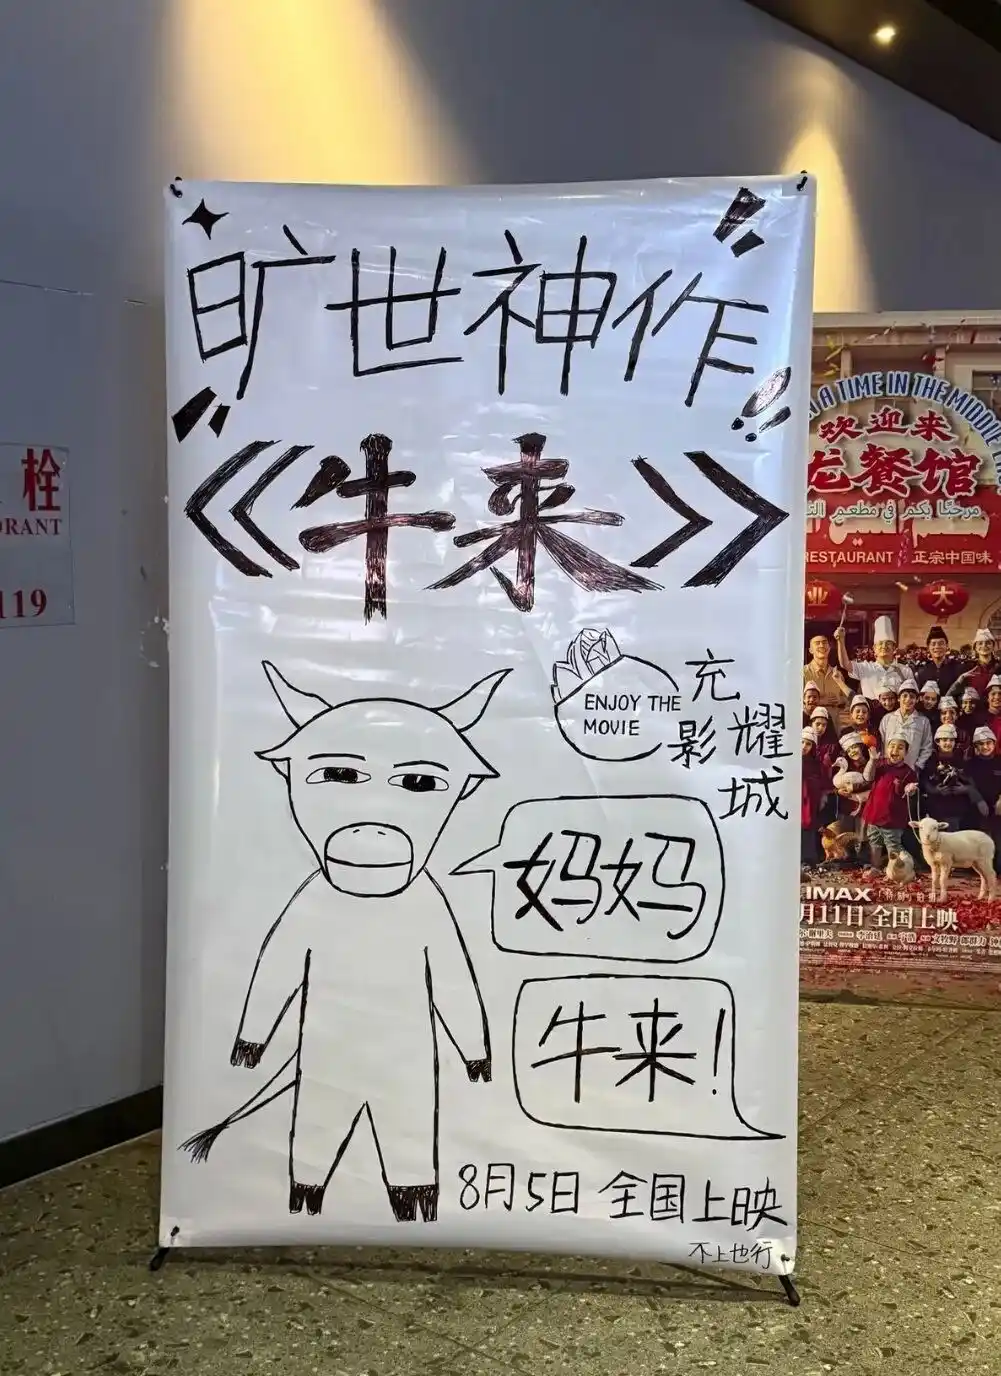 旷世神作!!
《牛来》
ENJOY THE
MOVIE
充
影耀
城
妈妈
牛来!
8月5日 全国上映
不上也行
栓
DRANT
119
A TIME IN THE MIDDLE
欢迎来
龙餐馆
مرحبًا بكم في مطعم
RESTAURANT 正宗中国味
业
大
IMAX
月11日 全国上映